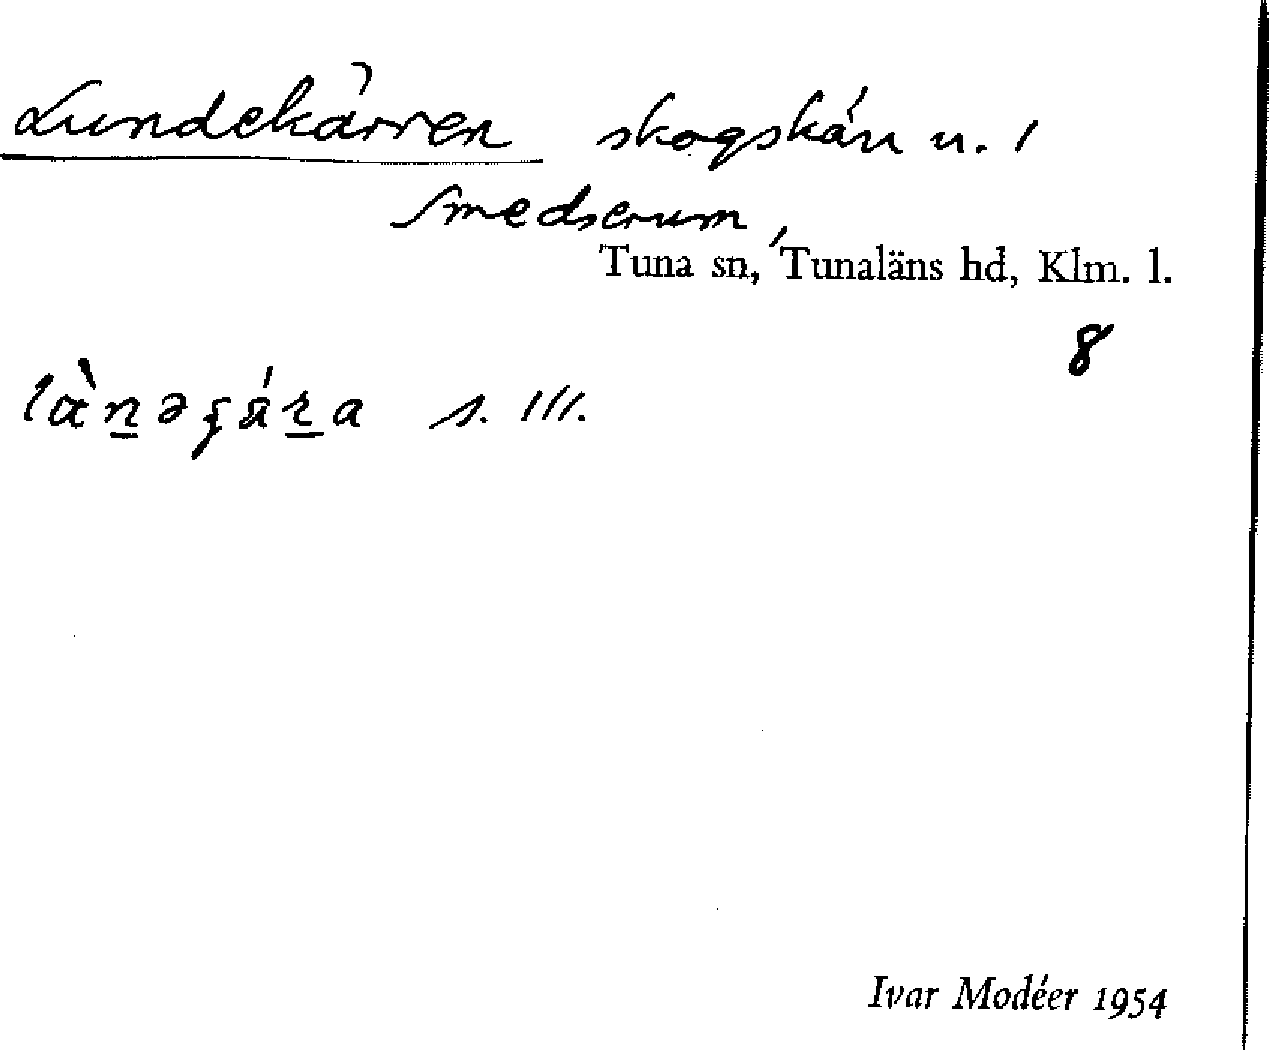 Lundekärren skogskärr u. 1
Smedserum,
Tuna sn, Tunaläns hd, Klm. l.
8
s. III.
Ivar Modéer 1954